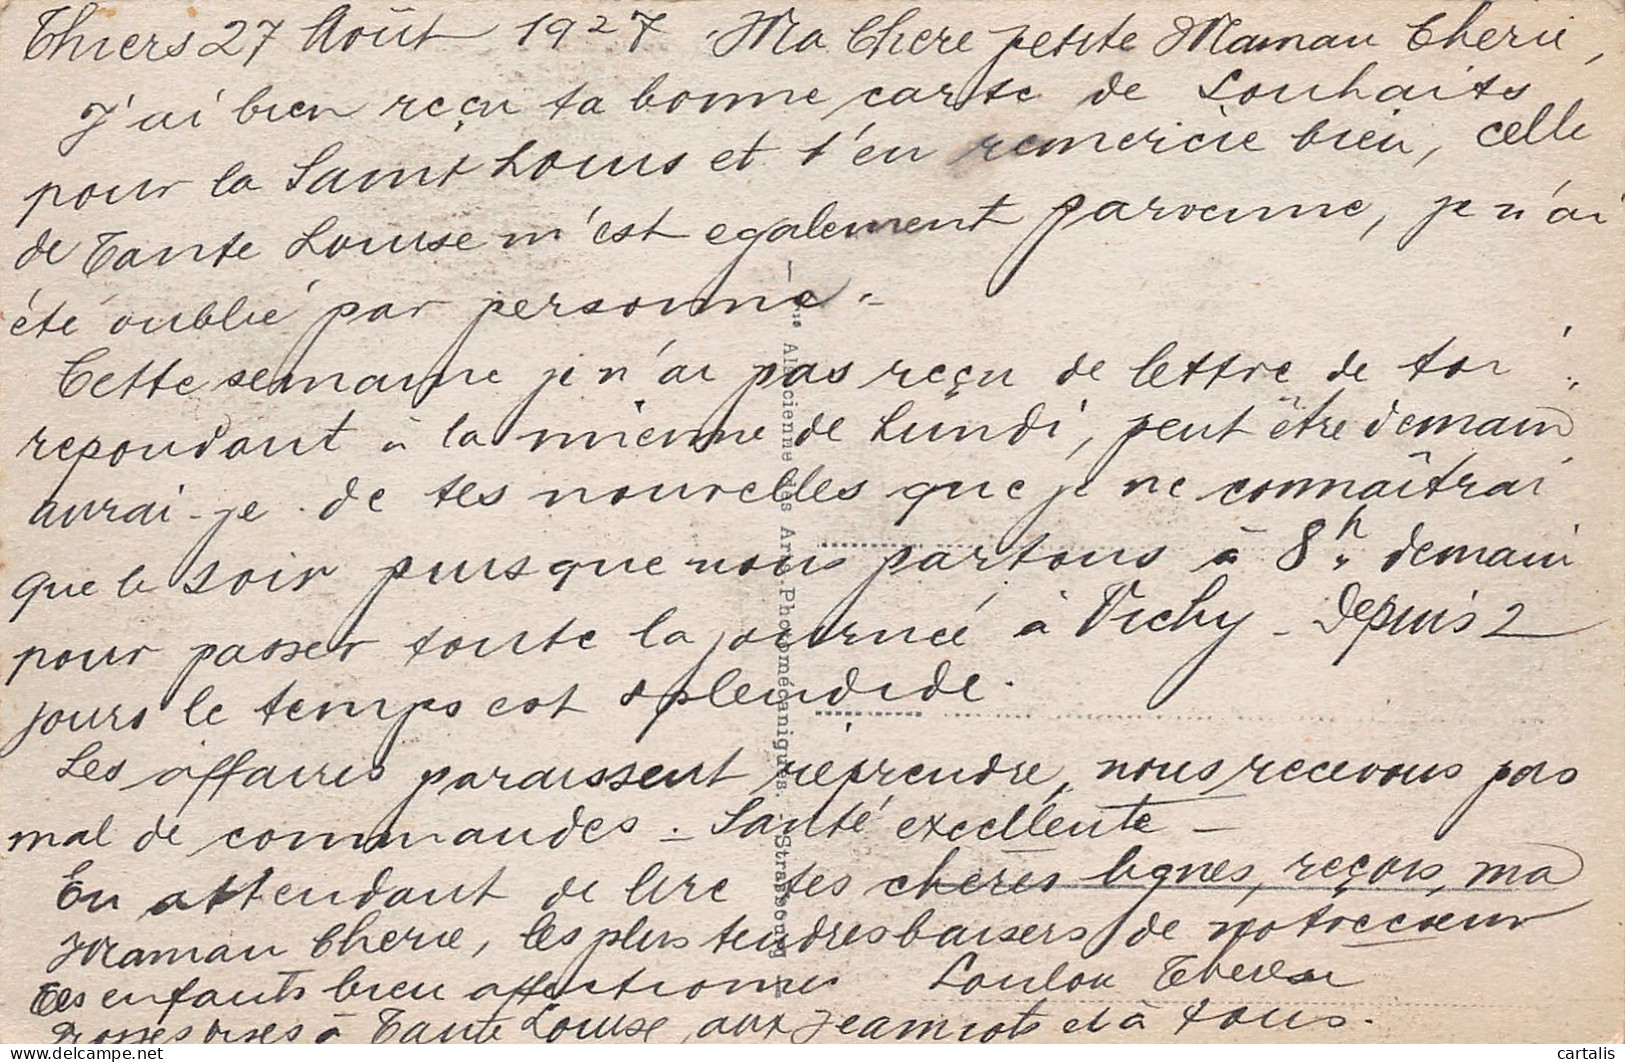 Thiers 27 Août 1927 Ma Chere petite Maman Cherie,
J'ai bien reçu ta bonne carte de Souhaits
pour la Saint Louis et t'en remercie bien, celle
de Tante Louise m'est egalement parvenue, je n'ai
été oublié par personne.
Cette semaine je n'ai pas reçu de lettre de toi
repondant à la mienne de Lundi, peut être demain
aurai-je de tes nouvelles que je ne connaîtrai
que le soir puisque nous partons à 8h. demain
pour passer toute la journée à Vichy - Depuis 2
jours le temps est splendide.
Les affaires paraissent réprendre, nous recevons pas
mal de commandes. Santé excellente -
En attendant de lire tes chères lignes, reçois, ma
Maman Cherie, les plus tendres baisers de notre cœur
Tes enfants bien affectionnés Loulou
Grosses bises à Tante Louise, aux Jeannots et à tous.
Alsacienne des Arts Photomécaniques. - Strasbourg
cartalis